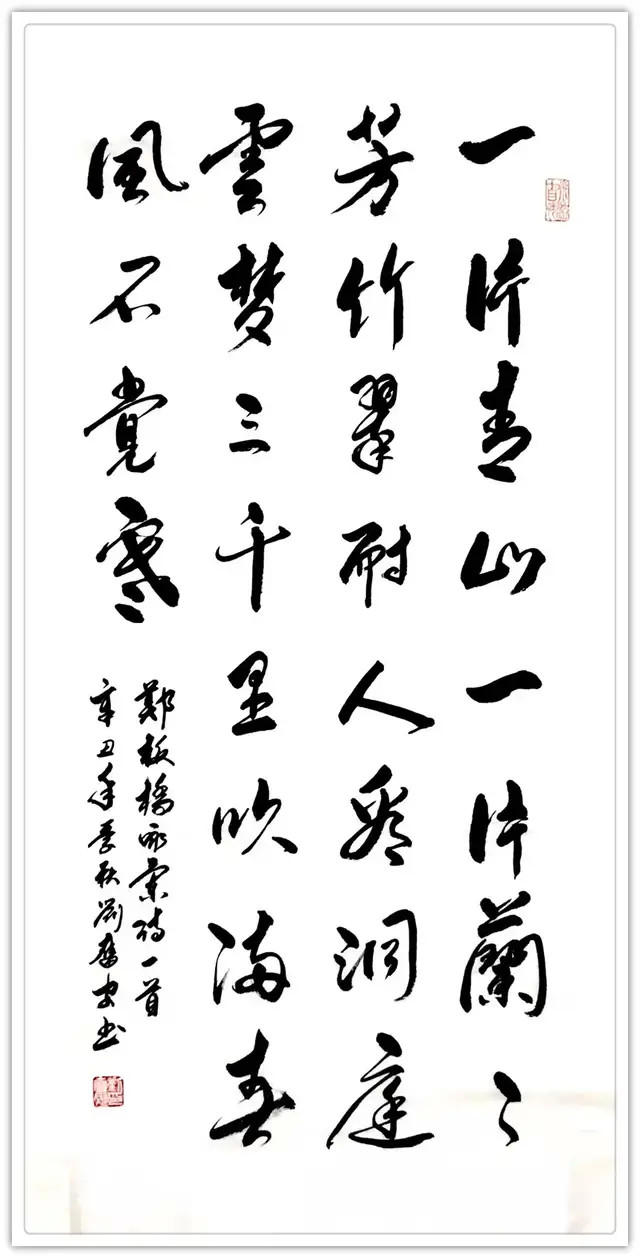 一片青山一片蘭〻
芳竹翠耐人看洞庭
雲梦三千里吹滿春
風不覺寒
鄭板橋咏蘭詩一首
辛丑年季秋劉安书